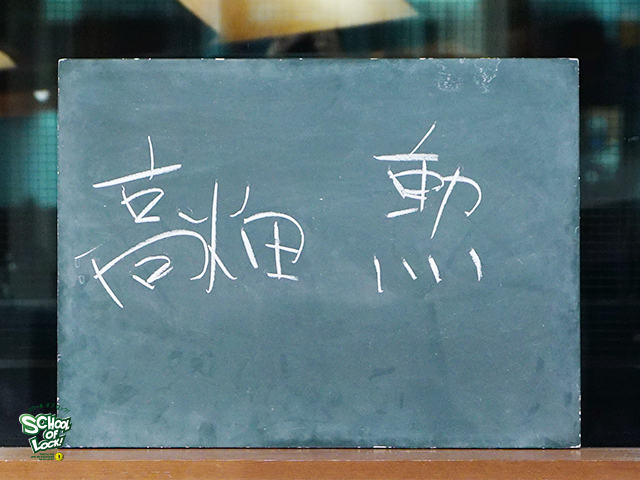 高畑 勲
SCHOOL
OF
LOCK!